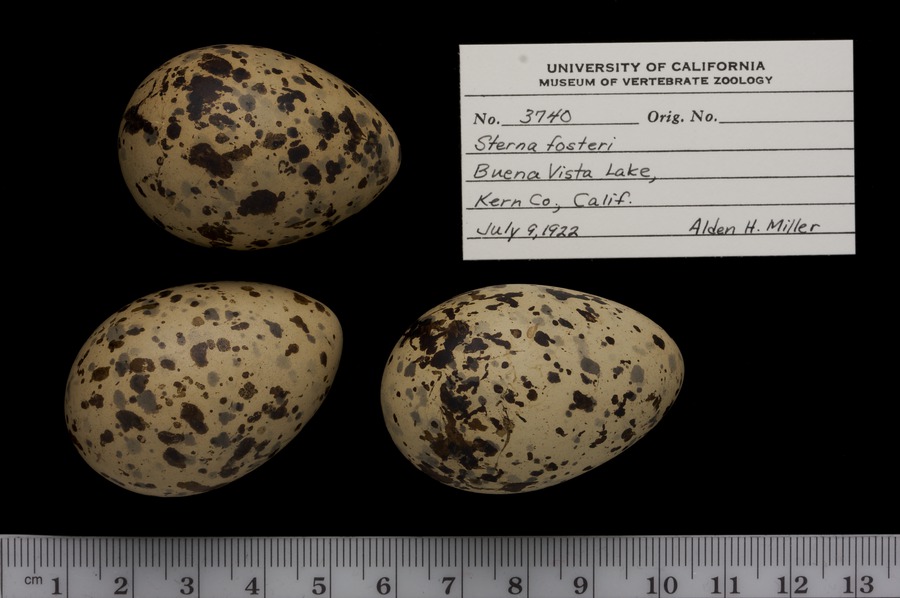 UNIVERSITY OF CALIFORNIA
MUSEUM OF VERTEBRATE ZOOLOGY
No. 3740 Orig. No.
Sterna fosteri
Buena Vista Lake,
Kern Co., Calif.
July 9, 1922 Alden H. Miller
cm 1 2 3 4 5 6 7 8 9 10 11 12 13